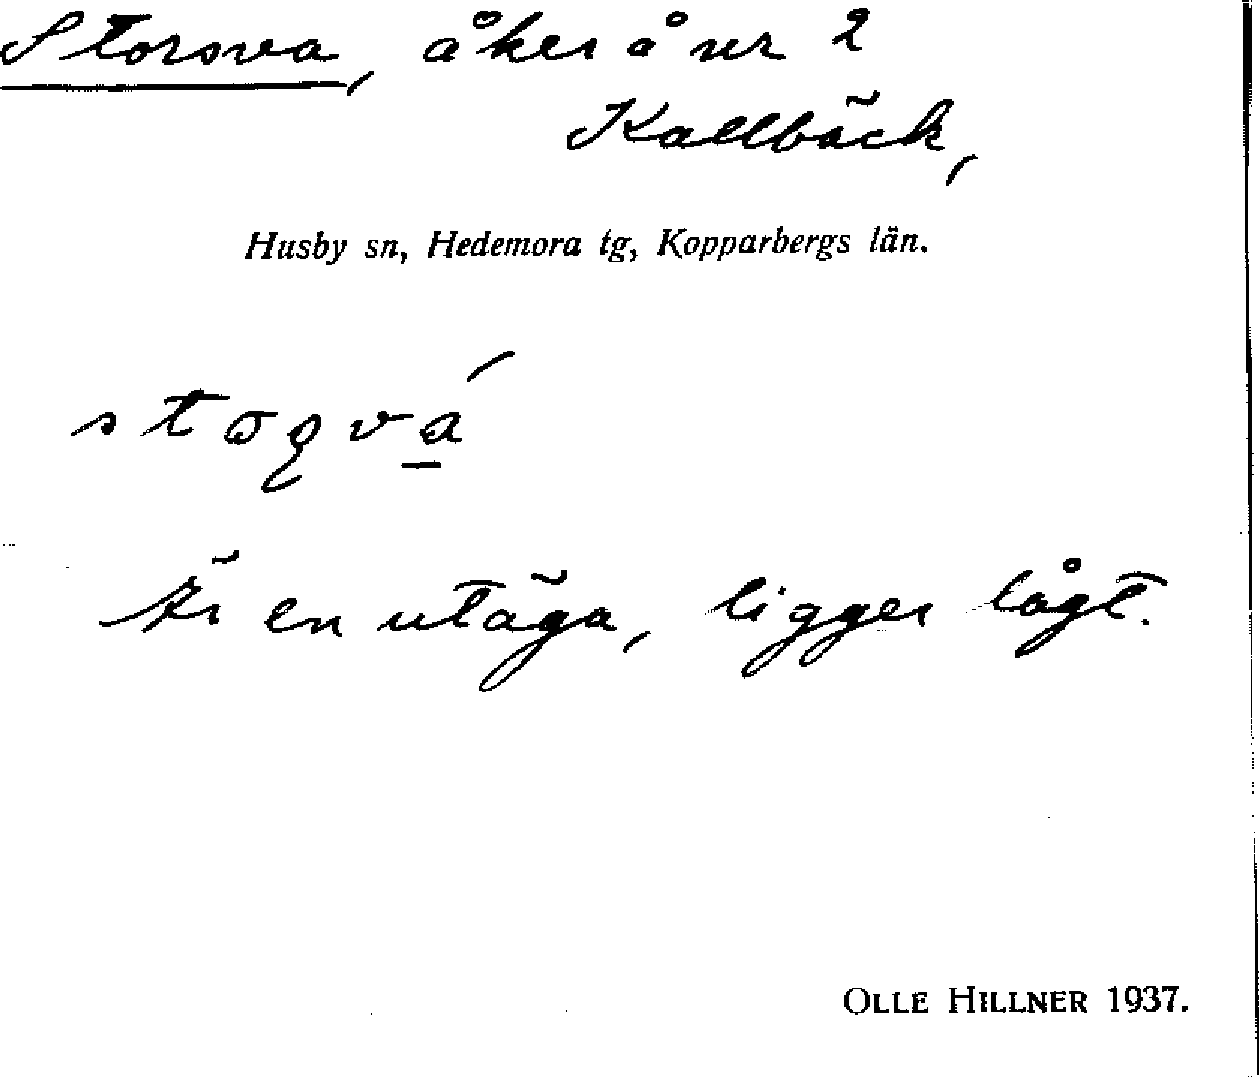 Storsva, åker å nr 2
Kallbäck,
Husby sn, Hedemora tg, Kopparbergs län.
Är en utäga, ligger lågt.
OLLE HILLNER 1937.